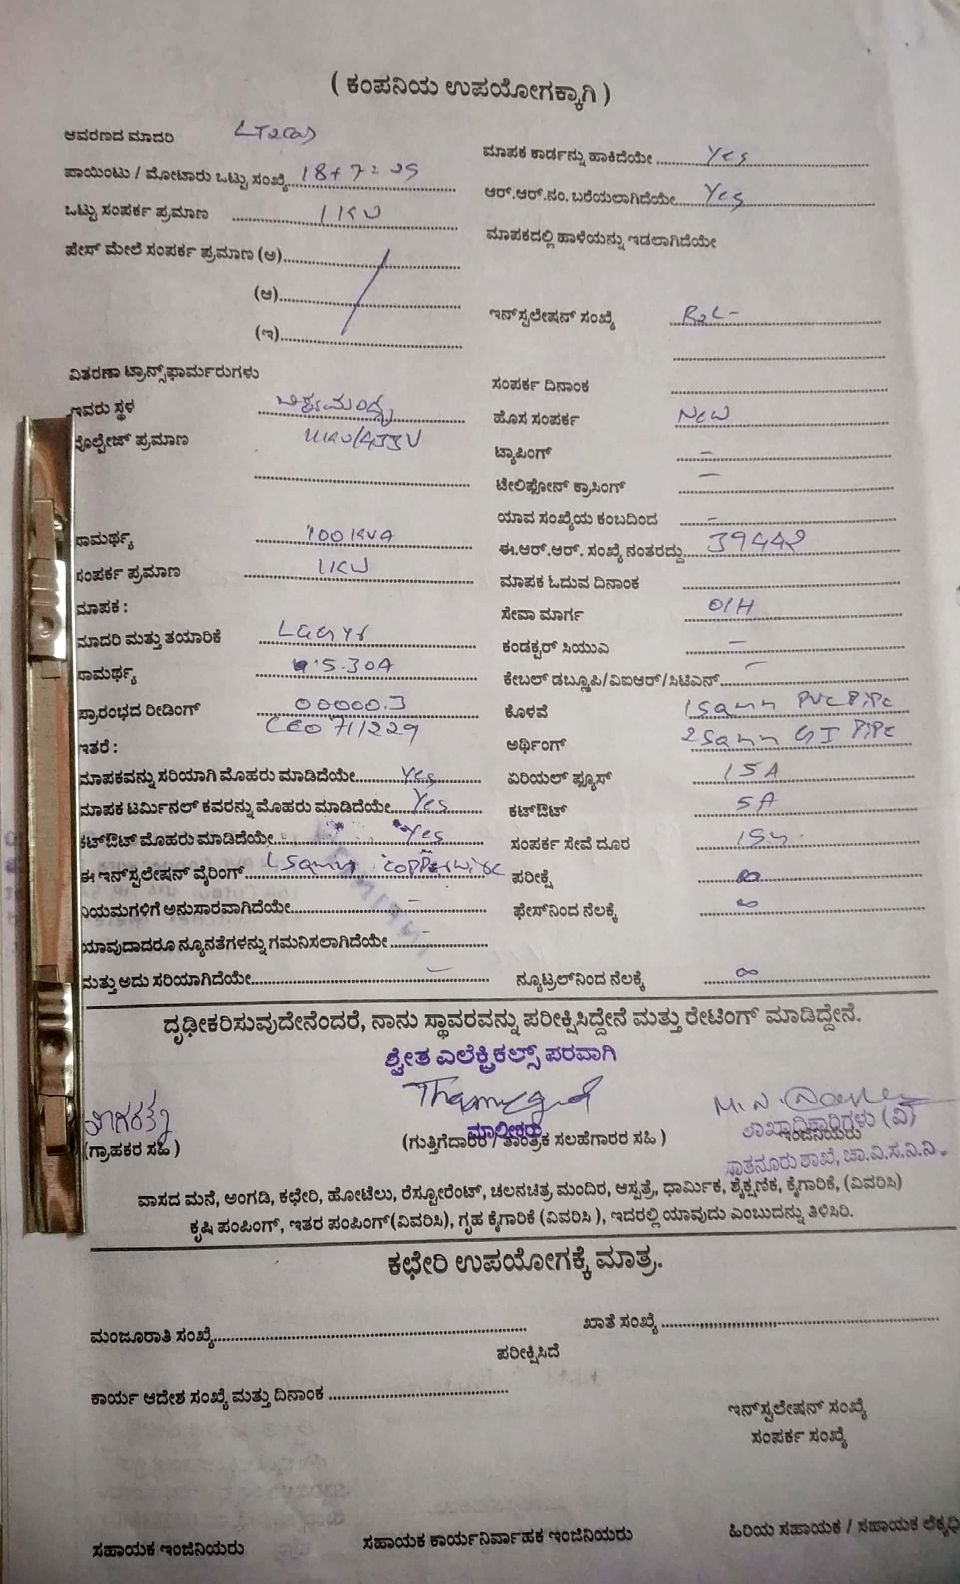 ( ಕಂಪನಿಯ ಉಪಯೋಗಕ್ಕಾಗಿ )
ಆವರಣದ ಮಾದರಿ LT2(a)
ಮಾಪಕ ಕಾರ್ಡನ್ನು ಹಾಕಿದೆಯೇ ............ Yes
ಪಾಯಿಂಟು / ಮೋಟಾರು ಒಟ್ಟು ಸಂಖ್ಯೆ 18+7=25
ಆರ್.ಆರ್.ನಂ. ಬರೆಯಲಾಗಿದೆಯೇ....... Yes
ಒಟ್ಟು ಸಂಪರ್ಕ ಪ್ರಮಾಣ 1KW
ಮಾಪಕದಲ್ಲಿ ಹಾಳೆಯನ್ನು ಇಡಲಾಗಿದೆಯೇ
ಪೇಸ್ ಮೇಲೆ ಸಂಪರ್ಕ ಪ್ರಮಾಣ (ಅ)............
(ಆ)............
(ಇ)............
ಇನ್‌ಸ್ಟಲೇಷನ್ ಸಂಖ್ಯೆ
ವಿತರಣಾ ಟ್ರಾನ್ಸ್‌ಫಾರ್ಮರುಗಳು
ಸಂಪರ್ಕ ದಿನಾಂಕ
ಇವರು ಸ್ಥಳ
ಹೊಸ ಸಂಪರ್ಕ New
ವೋಲ್ಟೇಜ್ ಪ್ರಮಾಣ 11KV/433V
ಟ್ಯಾಪಿಂಗ್ –
ಟೆಲಿಫೋನ್ ಕ್ರಾಸಿಂಗ್ –
ಯಾವ ಸಂಖ್ಯೆಯ ಕಂಬದಿಂದ –
ಸಾಮರ್ಥ್ಯ 100KVA
ಈ.ಆರ್.ಆರ್. ಸಂಖ್ಯೆ ನಂತರದ್ದು 39442
ಸಂಪರ್ಕ ಪ್ರಮಾಣ 1KW
ಮಾಪಕ ಓದುವ ದಿನಾಂಕ
ಮಾಪಕ :
ಸೇವಾ ಮಾರ್ಗ O/H
ಮಾದರಿ ಮತ್ತು ತಯಾರಿಕೆ
ಕಂಡಕ್ಟರ್ ಸಿಯುಎ –
ಸಾಮರ್ಥ್ಯ 5-30A
ಕೇಬಲ್ ಡಬ್ಲ್ಯೂಪಿ/ವಿಐಆರ್/ಸಿಟಿಎನ್ –
ಪ್ರಾರಂಭದ ರೀಡಿಂಗ್ 00000.3
ಕೊಳವೆ PVC PiPe
CE0 711229
ಇತರೆ :
ಅರ್ಥಿಂಗ್ GI PiPe
ಮಾಪಕವನ್ನು ಸರಿಯಾಗಿ ಮೊಹರು ಮಾಡಿದೆಯೇ............ Yes
ಏರಿಯಲ್ ಫ್ಯೂಸ್ 15A
ಮಾಪಕ ಟರ್ಮಿನಲ್ ಕವರನ್ನು ಮೊಹರು ಮಾಡಿದೆಯೇ..... Yes
ಕಟ್‌ಔಟ್ 5A
ಕಟ್‌ಔಟ್ ಮೊಹರು ಮಾಡಿದೆಯೇ............ Yes
ಸಂಪರ್ಕ ಸೇವೆ ದೂರ 15m
ಈ ಇನ್‌ಸ್ಟಲೇಷನ್ ವೈರಿಂಗ್............ copper wire
ಪರೀಕ್ಷೆ ∞
ನಿಯಮಗಳಿಗೆ ಅನುಸಾರವಾಗಿದೆಯೇ............ –
ಫೇಸ್‌ನಿಂದ ನೆಲಕ್ಕೆ ∞
ಯಾವುದಾದರೂ ನ್ಯೂನತೆಗಳನ್ನು ಗಮನಿಸಲಾಗಿದೆಯೇ ............ –
ಮತ್ತು ಅದು ಸರಿಯಾಗಿದೆಯೇ............ –
ನ್ಯೂಟ್ರಲ್‌ನಿಂದ ನೆಲಕ್ಕೆ ∞
ದೃಢೀಕರಿಸುವುದೇನೆಂದರೆ, ನಾನು ಸ್ಥಾವರವನ್ನು ಪರೀಕ್ಷಿಸಿದ್ದೇನೆ ಮತ್ತು ರೇಟಿಂಗ್ ಮಾಡಿದ್ದೇನೆ.
ಶ್ವೇತ ಎಲೆಕ್ಟ್ರಿಕಲ್ಸ್ ಪರವಾಗಿ
ಮಾಲೀಕರು
(ಗ್ರಾಹಕರ ಸಹಿ )
(ಗುತ್ತಿಗೆದಾರರ / ತಾಂತ್ರಿಕ ಸಲಹೆಗಾರರ ಸಹಿ )
ಇಂಜಿನಿಯರು
ಶಾಖಾಧಿಕಾರಿಗಳು (ವಿ)
ಸಾತನೂರು ಶಾಖೆ, ಚಾ.ವಿ.ಸ.ನಿ.ನಿ.
ವಾಸದ ಮನೆ, ಅಂಗಡಿ, ಕಛೇರಿ, ಹೋಟೆಲು, ರೆಸ್ಟೋರೆಂಟ್, ಚಲನಚಿತ್ರ ಮಂದಿರ, ಆಸ್ಪತ್ರೆ, ಧಾರ್ಮಿಕ, ಶೈಕ್ಷಣಿಕ, ಕೈಗಾರಿಕೆ, (ವಿವರಿಸಿ)
ಕೃಷಿ ಪಂಪಿಂಗ್, ಇತರ ಪಂಪಿಂಗ್(ವಿವರಿಸಿ), ಗೃಹ ಕೈಗಾರಿಕೆ (ವಿವರಿಸಿ ), ಇದರಲ್ಲಿ ಯಾವುದು ಎಂಬುದನ್ನು ತಿಳಿಸಿರಿ.
ಕಛೇರಿ ಉಪಯೋಗಕ್ಕೆ ಮಾತ್ರ.
ಮಂಜೂರಾತಿ ಸಂಖ್ಯೆ............
ಖಾತೆ ಸಂಖ್ಯೆ ............
ಪರೀಕ್ಷಿಸಿದೆ
ಕಾರ್ಯ ಆದೇಶ ಸಂಖ್ಯೆ ಮತ್ತು ದಿನಾಂಕ ............
ಇನ್‌ಸ್ಟಲೇಷನ್ ಸಂಖ್ಯೆ
ಸಂಪರ್ಕ ಸಂಖ್ಯೆ
ಸಹಾಯಕ ಇಂಜಿನಿಯರು
ಸಹಾಯಕ ಕಾರ್ಯನಿರ್ವಾಹಕ ಇಂಜಿನಿಯರು
ಹಿರಿಯ ಸಹಾಯಕ / ಸಹಾಯಕ ಲೆಕ್ಕಧಿ